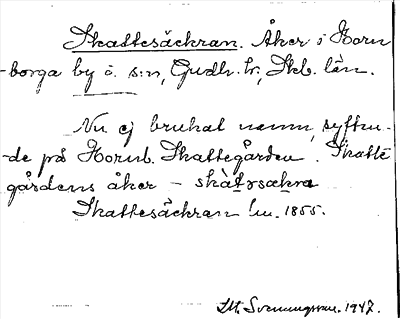 Skattesäckran. Åker i Horn
-borga by o. s:n, Gudh. hr, Skb. län.
Nu ej brukat namn, syftan-
-de på Hornb. Skattegården. Skatte
gårdens åker – skàtɿsækra
Skattesäckran lm. 1855.
Svenungsson. 1947.